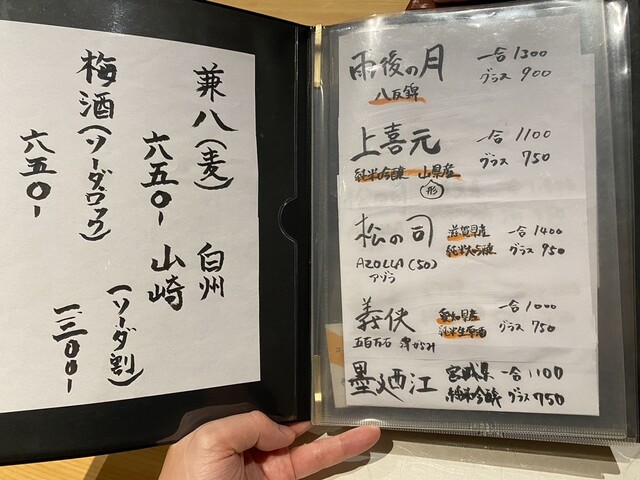 兼八(麦)
六五〇-
白州
山崎
(ソーダ割)
一三〇〇-
梅酒(ソーダ、ロック)
六五〇-
雨後の月 一合 1300
グラス 900
八反錦
上喜元 一合 1100
グラス 750
純米吟醸 山県産
形
松の司 滋賀県産 一合 1400
純米大吟醸 グラス 950
AZOLLA(50)
アゾラ
義侠 愛知県産 一合 1000
純米生原酒 グラス 750
五百万石 滓がらみ
墨廼江 宮城県 一合 1100
純米吟醸 グラス 750